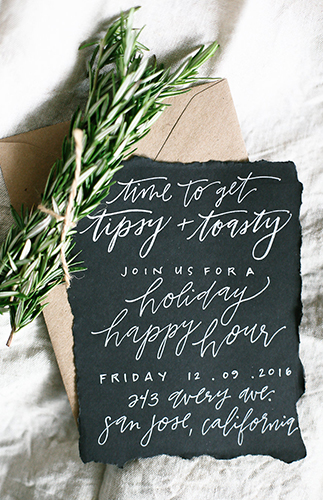 time to get
tipsy + toasty
JOIN US FOR A
holiday
happy hour
FRIDAY 12.09.2016
243 avery ave.
san jose, california